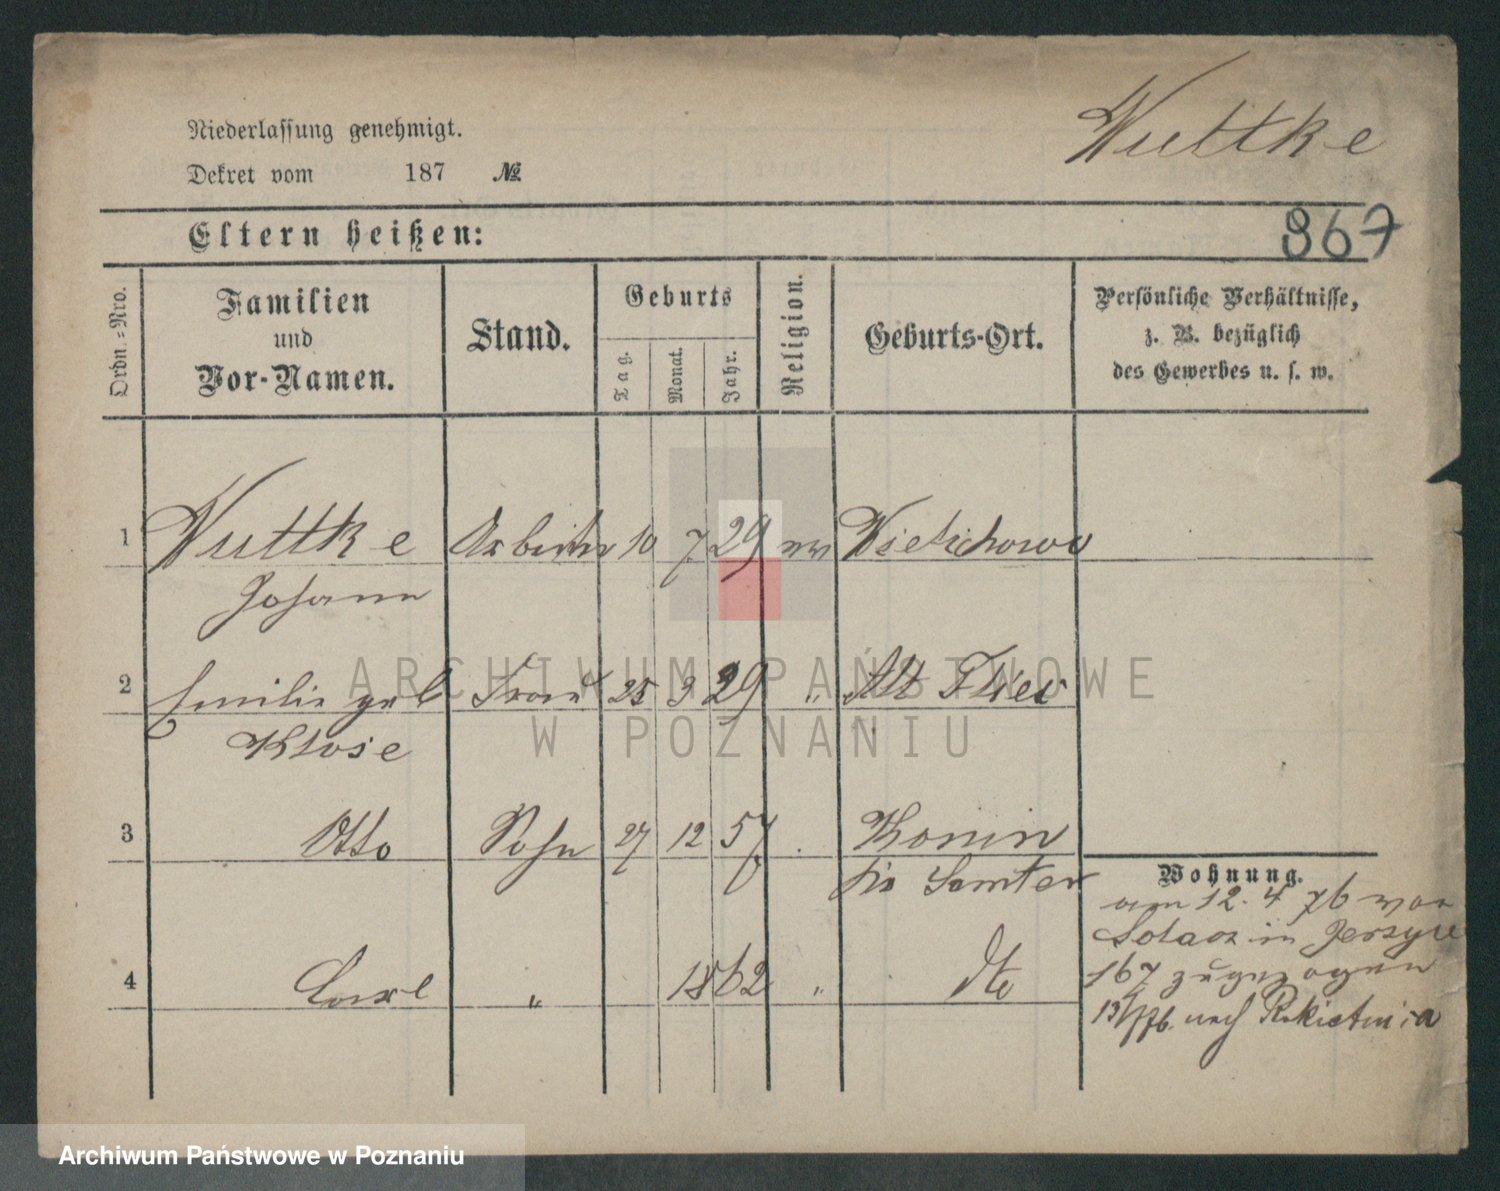 Wuttke
Niederlassung genehmigt.
Dekret vom 187 №
Eltern heißen:
867
Ordn.-Nro.
Familien
und
Vor-Namen.
Stand.
Geburts
Tag.
Monat.
Jahr.
Religion.
Geburts-Ort.
Persönliche Verhältnisse,
z. B. bezüglich
des Gewerbes u. s. w.
1 Wuttke Arbeiter 10 7 29 Wielichowo
Johann
2 Emilie geb Frau 25 3 29 " Alt
Klose
3 Otto Sohn 27 12 57 Konin
Kr Samter
4 Carl " 1862 " dto
Wohnung.
am 12. 4 76 von
Solacz in Jerzyce
167 zugezogen
nach Rokietnica
ARCHIWUM PAŃSTWOWE
W POZNANIU
Archiwum Państwowe w Poznaniu